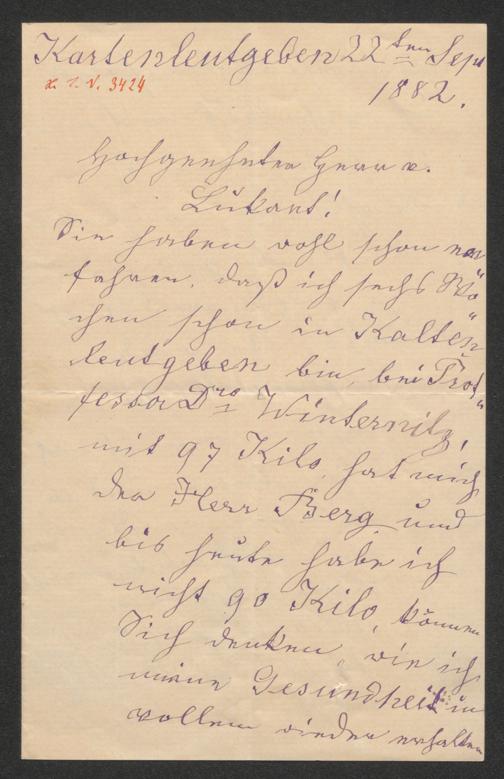 Kartenleutgeben 22ten Sept
I. N. 3424
1882.
Hochgeehrter Herr v.
Lukant!
Sie haben wohl schon er
fahren, daß ich sechs Wo
chen schon in Kalten
leutgeben bin, bei Prof
fessor Drs Winternitz,
mit 97 Kilo, hat mich
der Herr Berg und
bis heute habe ich
nicht 90 Kilo, können
Sich denken, wie ich
meine Gesundheit in
vollem wieder erhalten